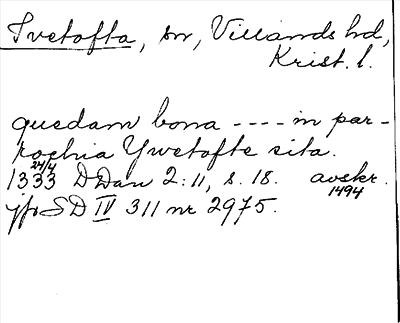 Ivetofta, sn, Villands hd,
Krist. l.
quedam bona ---- in par-
rochia Ywetofte sita.
24/4
1333 DDan 2:11, s. 18. avskr.
1494
jfr SD IV 311 nr 2975.